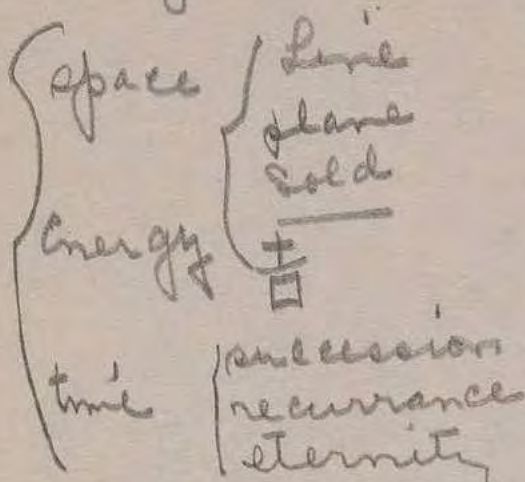 space
Line
plane
Sold
energy
±
□
time
succession
recurrance
eternity